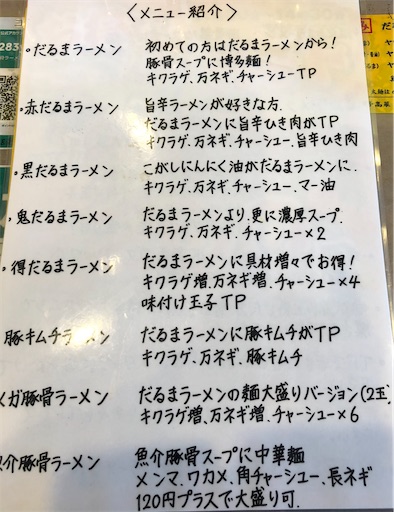 〈メニュー紹介〉
•だるまラーメン 初めての方はだるまラーメンから!
豚骨スープに博多麺!
キクラゲ、万ネギ、チャーシューTP
•赤だるまラーメン 旨辛ラーメンが好きな方、
だるまラーメンに旨辛ひき肉がTP
キクラゲ、万ネギ、チャーシュー、旨辛ひき肉
•黒だるまラーメン こがしにんにく油がだるまラーメンに、
キクラゲ、万ネギ、チャーシュー、マー油
•鬼だるまラーメン だるまラーメンより、更に濃厚スープ、
キクラゲ、万ネギ、チャーシュー×2
•得だるまラーメン だるまラーメンに具材増々でお得!
キクラゲ増、万ネギ増、チャーシュー×4
味付け玉子TP
豚キムチラーメン だるまラーメンに豚キムチがTP
キクラゲ、万ネギ、豚キムチ
メガ豚骨ラーメン だるまラーメンの麺大盛りバージョン(2玉)
キクラゲ増、万ネギ増、チャーシュー×6
介豚骨ラーメン 魚介豚骨スープに中華麺
メンマ、ワカメ、角チャーシュー、長ネギ
120円プラスで大盛り可.
283